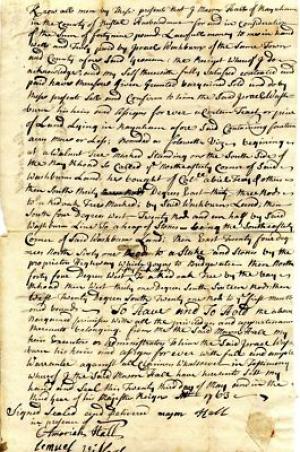 Know all men by these presents that I Mason Hall of Raynham
in the County of Bristol Husbandman for and in Consideration
of the Sum of forty nine pound Lawfull money to me in hand
well and Truly paid by Israel Washburn of the Same Town
and County afore Said Yeoman the Receipt Whereof I do
acknowledge and my Self therewith fully Satisfied contented and
paid have therefore given Granted bargained Sold and do by
these presents Sell and Confirm to him the Said Israel Wash
burn his heirs and assigns for ever a Certain Tract or
piece of Land Lying in Raynham afore Said Containing fourteen
acres more or Less; bounded as followeth Viz begining
at a Walnut Tree marked Standing over the South Side of
the Way Which is Called the Northeasterly Corner of Said
Washburns Land he bought of others
then South thirty Degree East thirty three Rods
to an oak Tree Marked; by Said Washburns Land, then
South four Degree West Twenty Rod and an half by Said
Washburn Line To a heap of Stones being the Southeasterly
Corner of Said Washburns Land; then East Twenty four deg
North Sixty one Rods to a Stake and Stones by the
then North
forty four Degree West to a oak Tree by the Way
then West thirty one Degree South Sixteen Rods then
West Twenty Degree South Twenty one Rods to ye first mentioned
bound To Have and To Hold the above
bargained premises with all the priviledges and appurtenances
thereunto belonging from me the Said Mason Hall my
heirs Executors or Administrators To him the Said Israel Wash
burn his heirs and assigns for ever
Warrantee against all Claims Whatsoever in Testimony
Whereof I the Said Mason Hall have hereunto Set my
hand and Seal this Twenty third Day of May and in the
third year of his Majesties Reign 1763
Signed Sealed and Delivered Mason Hall
in presence of
Amariah Hall
Lemuel